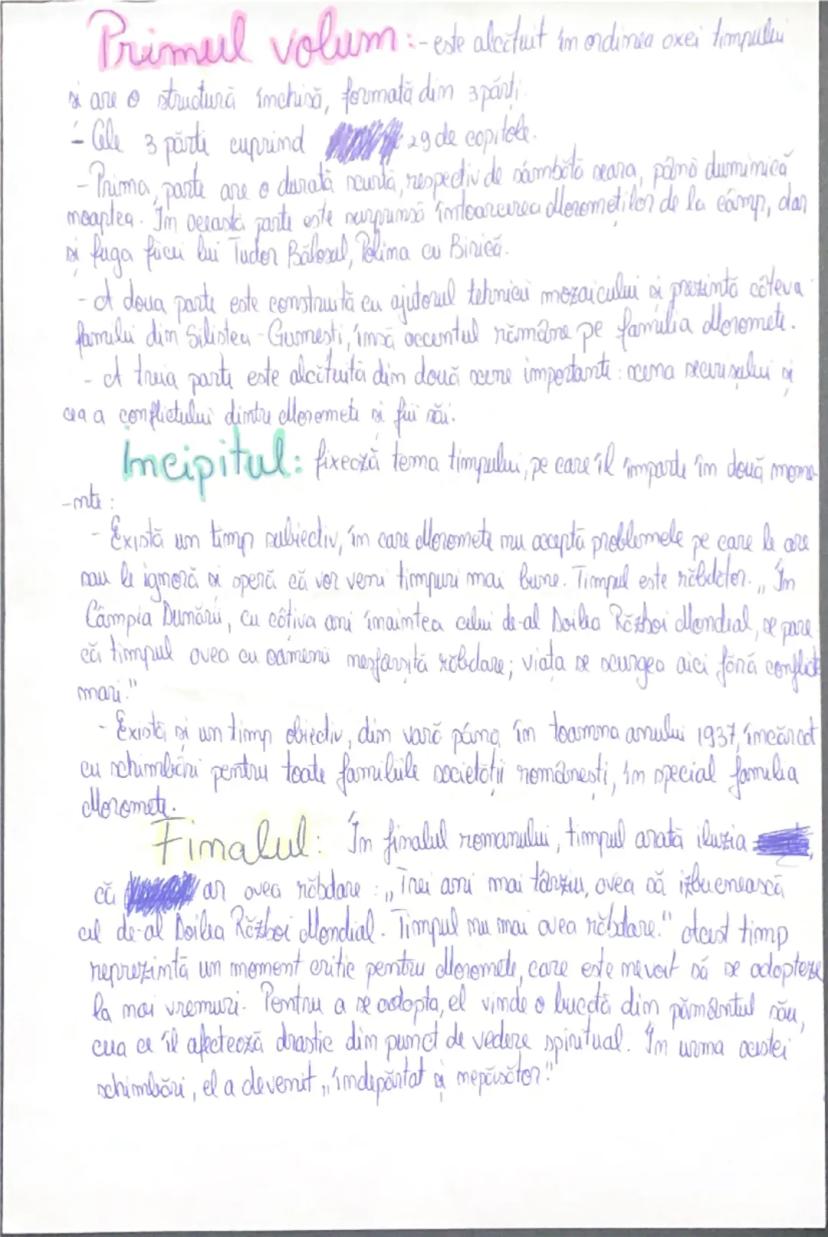 Primul volum: - este alcătuit în ordinea axei timpului
și are o structură închisă, formată din 3 părți.
- Cele 3 părți cuprind 29 de capitole.
- Prima parte are o durată scurtă, respectiv de sâmbătă seara, până duminică
noaptea. În această parte este surprinsă întoarcerea Moromeților de la câmp, dar
și fuga fiicei lui Tudor Bălosul, Polina cu Birică.
- A doua parte este construită cu ajutorul tehnicii mozaicului și prezintă câteva
familii din Siliștea-Gumești, însă accentul rămâne pe familia Moromete.
- A treia parte este alcătuită din două scene importante: scena secerișului și
cea a conflictului dintre Moromete și fiii săi.
Incipitul: fixează tema timpului, pe care îl împarte în două mome-
-nte:
- Există un timp subiectiv, în care Moromete nu acceptă problemele pe care le are
sau le ignoră și speră că vor veni timpuri mai bune. Timpul este răbdător. „În
Câmpia Dunării, cu câțiva ani înaintea celui de-al Doilea Război Mondial, se pare
că timpul avea cu oamenii nesfârșită răbdare; viața se scurgea aici fără conflicte
mari."
- Există și un timp obiectiv, din vară până în toamna anului 1937, încărcat
cu schimbări pentru toate familiile societății românești, în special familia
Moromete.
Finalul: În finalul romanului, timpul arată iluzia
că ar avea răbdare: „Trei ani mai târziu, avea să izbucnească
cel de-al Doilea Război Mondial. Timpul nu mai avea răbdare." Acest timp
reprezintă un moment critic pentru Moromete, care este nevoit să se adapteze
la noi vremuri. Pentru a se adapta, el vinde o bucată din pământul său,
ceea ce îl afectează drastic din punct de vedere spiritual. În urma acestei
schimbări, el a devenit „îndepărtat și nepăsător."